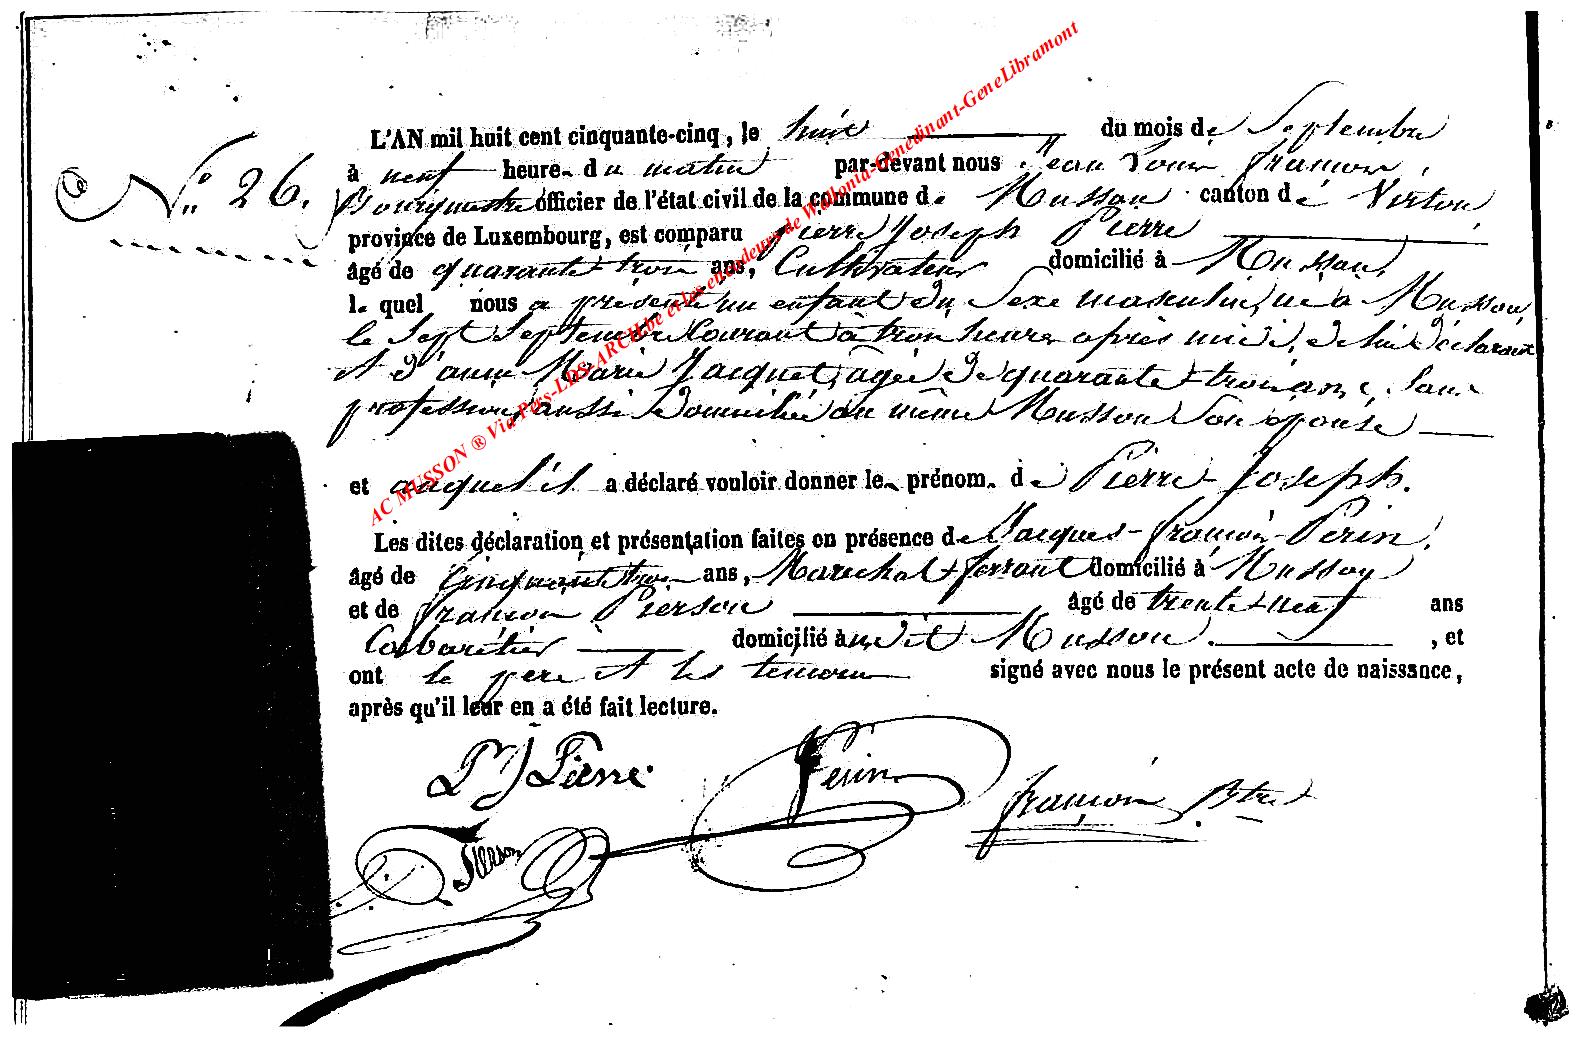 N° 26.
L'AN mil huit cent cinquante-cinq, le huit du mois de Septembre
à neuf heure du matin par-devant nous Jean Louis françois,
Bourgmestre officier de l'état civil de la commune de Musson canton de Virton,
province de Luxembourg, est comparu Pierre Joseph Pierre
âgé de quarante-trois ans, Cultivateur domicilié à Musson,
lequel nous a présenté un enfant du Sexe masculin, né à Musson,
le Sept Septembre Courant à trois heures après midi, de lui déclarant
et d'anne Marie Jacquet, agée de quarante-trois ans, Sans
profession, aussi domiciliée au même Musson Son épouse
et auquel il a déclaré vouloir donner le prénom de Pierre Joseph.
Les dites déclaration et présentation faites en présence de Jacques-françois-Perin,
âgé de Cinquante trois ans, Marechal ferrant domicilié à Musson
et de françois Pierson âgé de trente-neuf ans
Cabaretier domicilié au dit Musson. , et
ont le père et les temoins signé avec nous le présent acte de naissance,
après qu'il leur en a été fait lecture.
P J Pierre
Perin
françois
Pierson
AC MUSSON ® Via Pers-LDS-ARCH.be et les encodeurs de Wallonia-Genedinant-GeneLibramont